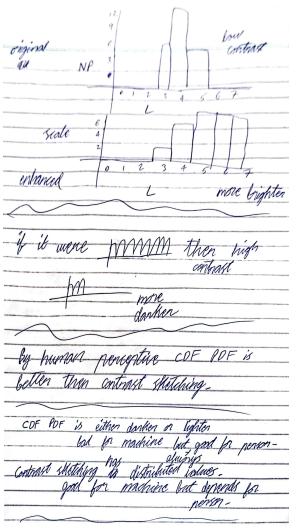 12
9
6
3
0
original
NP
low
contrast
0 1 2 3 4 5 6 7
L
scale
6
4
2
0 1 2 3 4 5 6 7
enhanced
L
more brighter
if it were then high
contrast
more
darker
By human perceptive CDF PDF is
better then contrast sketching.
CDF PDF is either darker or lighter
bad for machine but good for person-
contrast sketching has always distributed values.
good for machine but depends for
person-